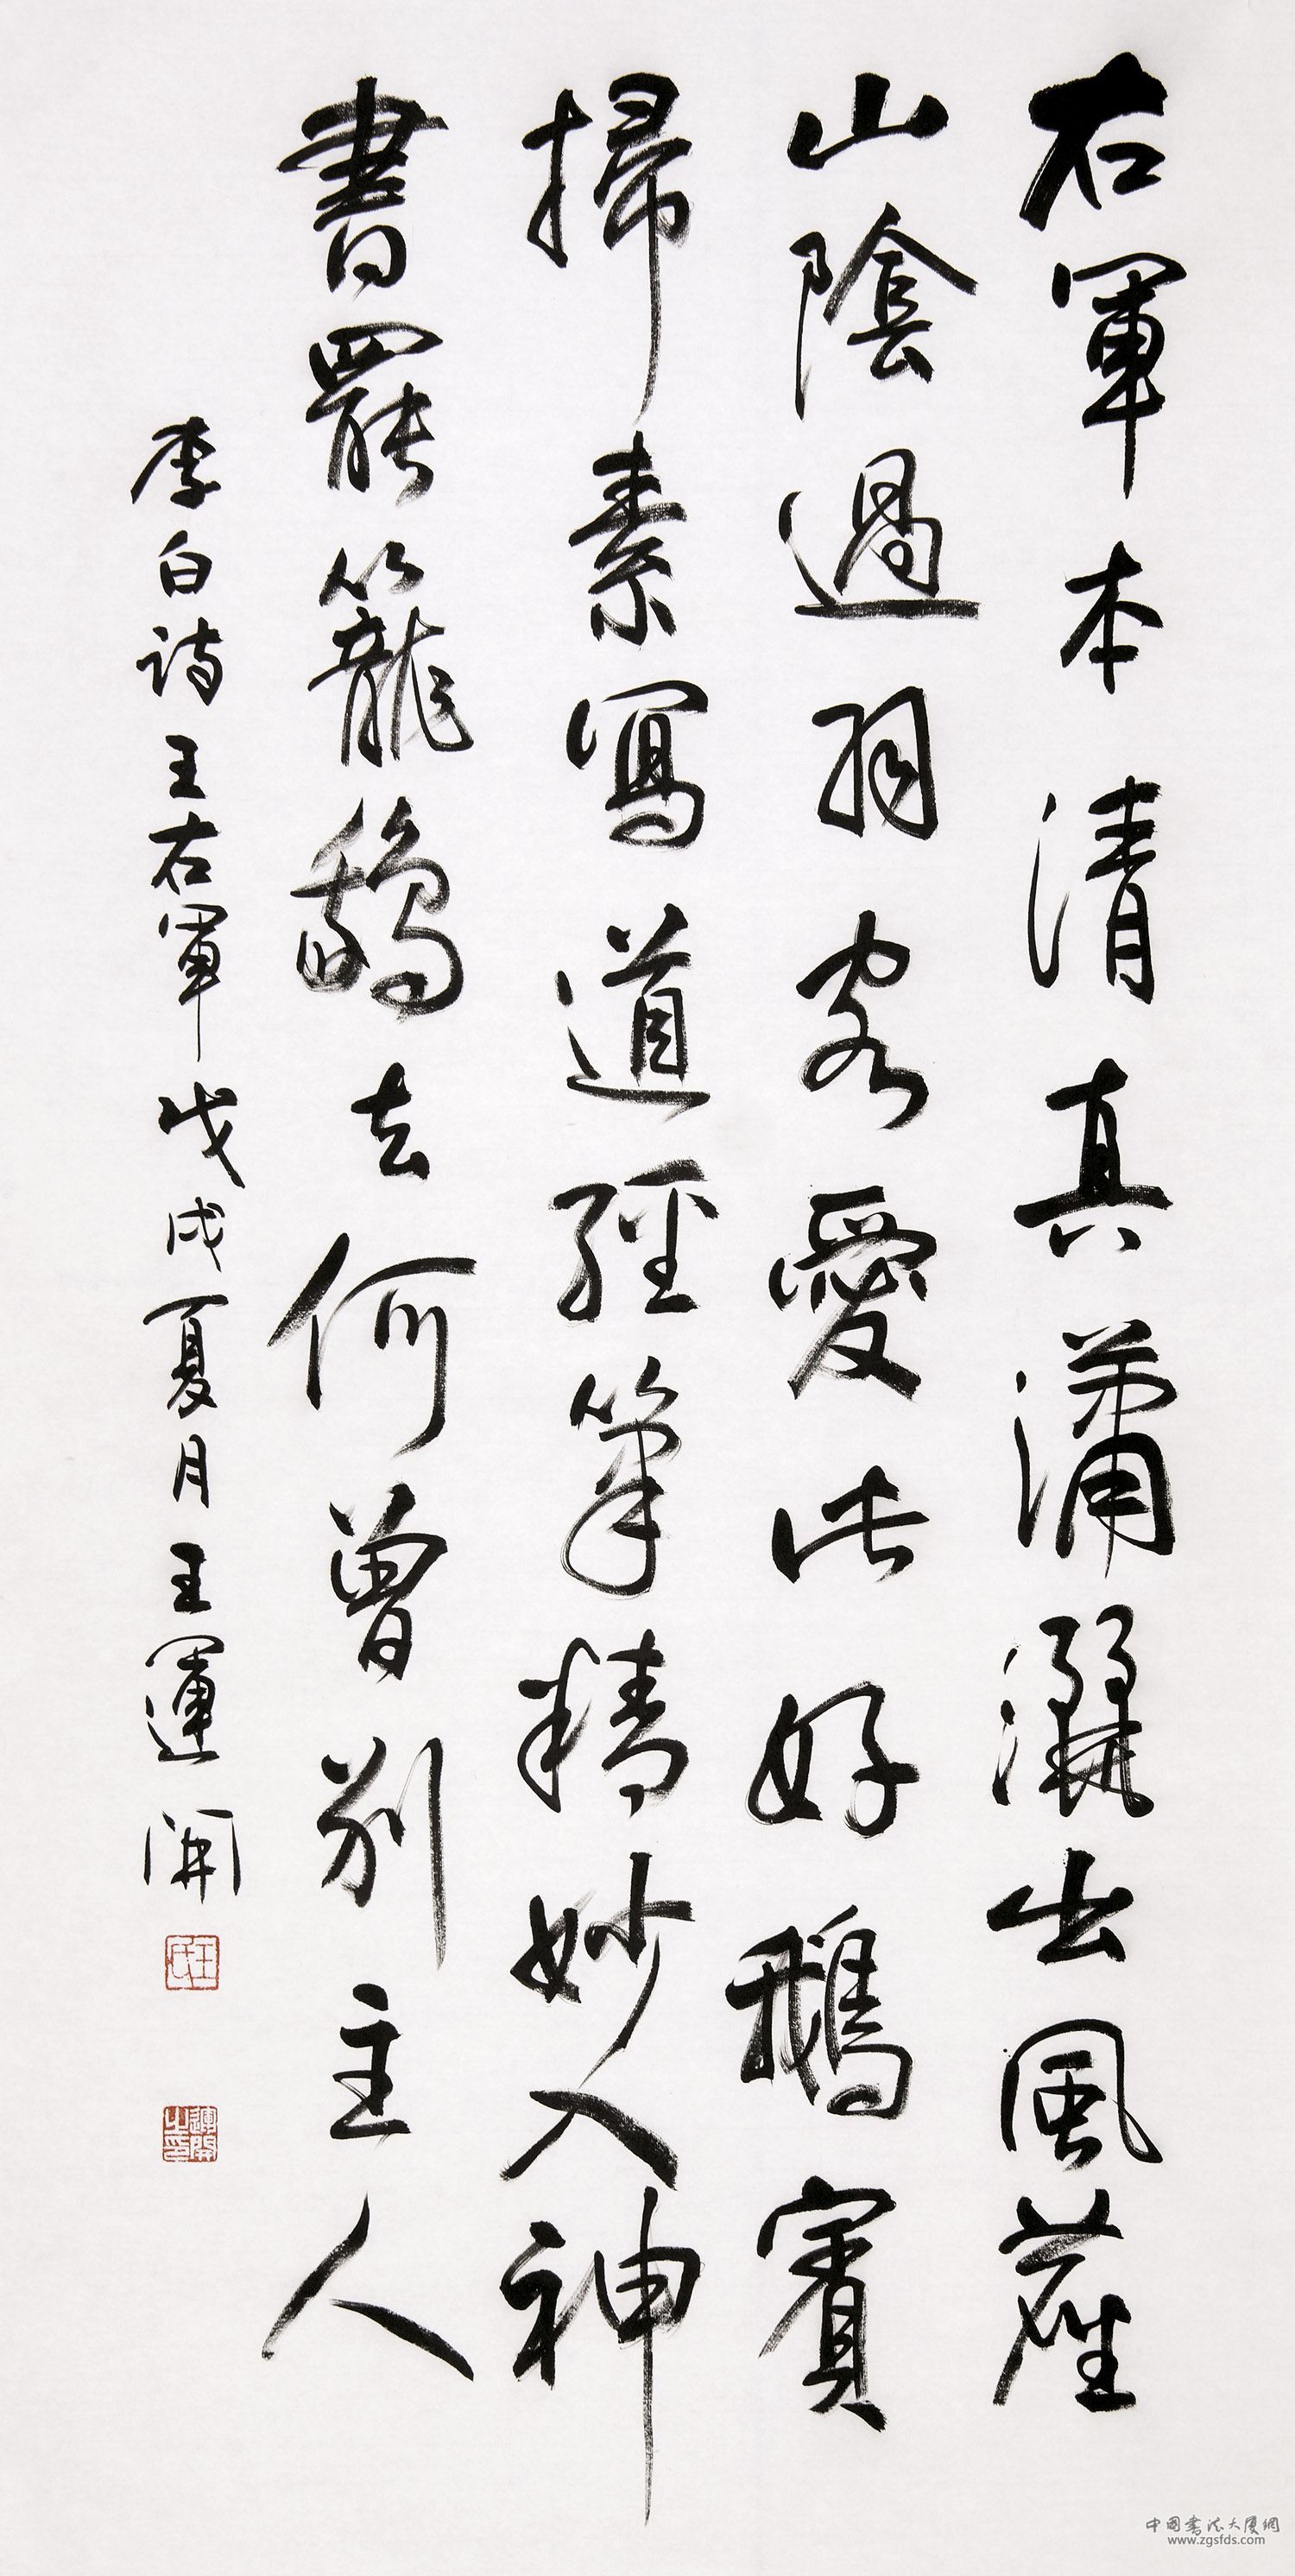 右軍本清真瀟灑出風塵
山陰過羽客愛此好鵝賓
掃素寫道經筆精妙入神
書罷籠鵝去何曾別主人
李白詩王右軍戊戌夏月王運開
王氏
運開之印
中国書法大廈網
www.zgsfds.com